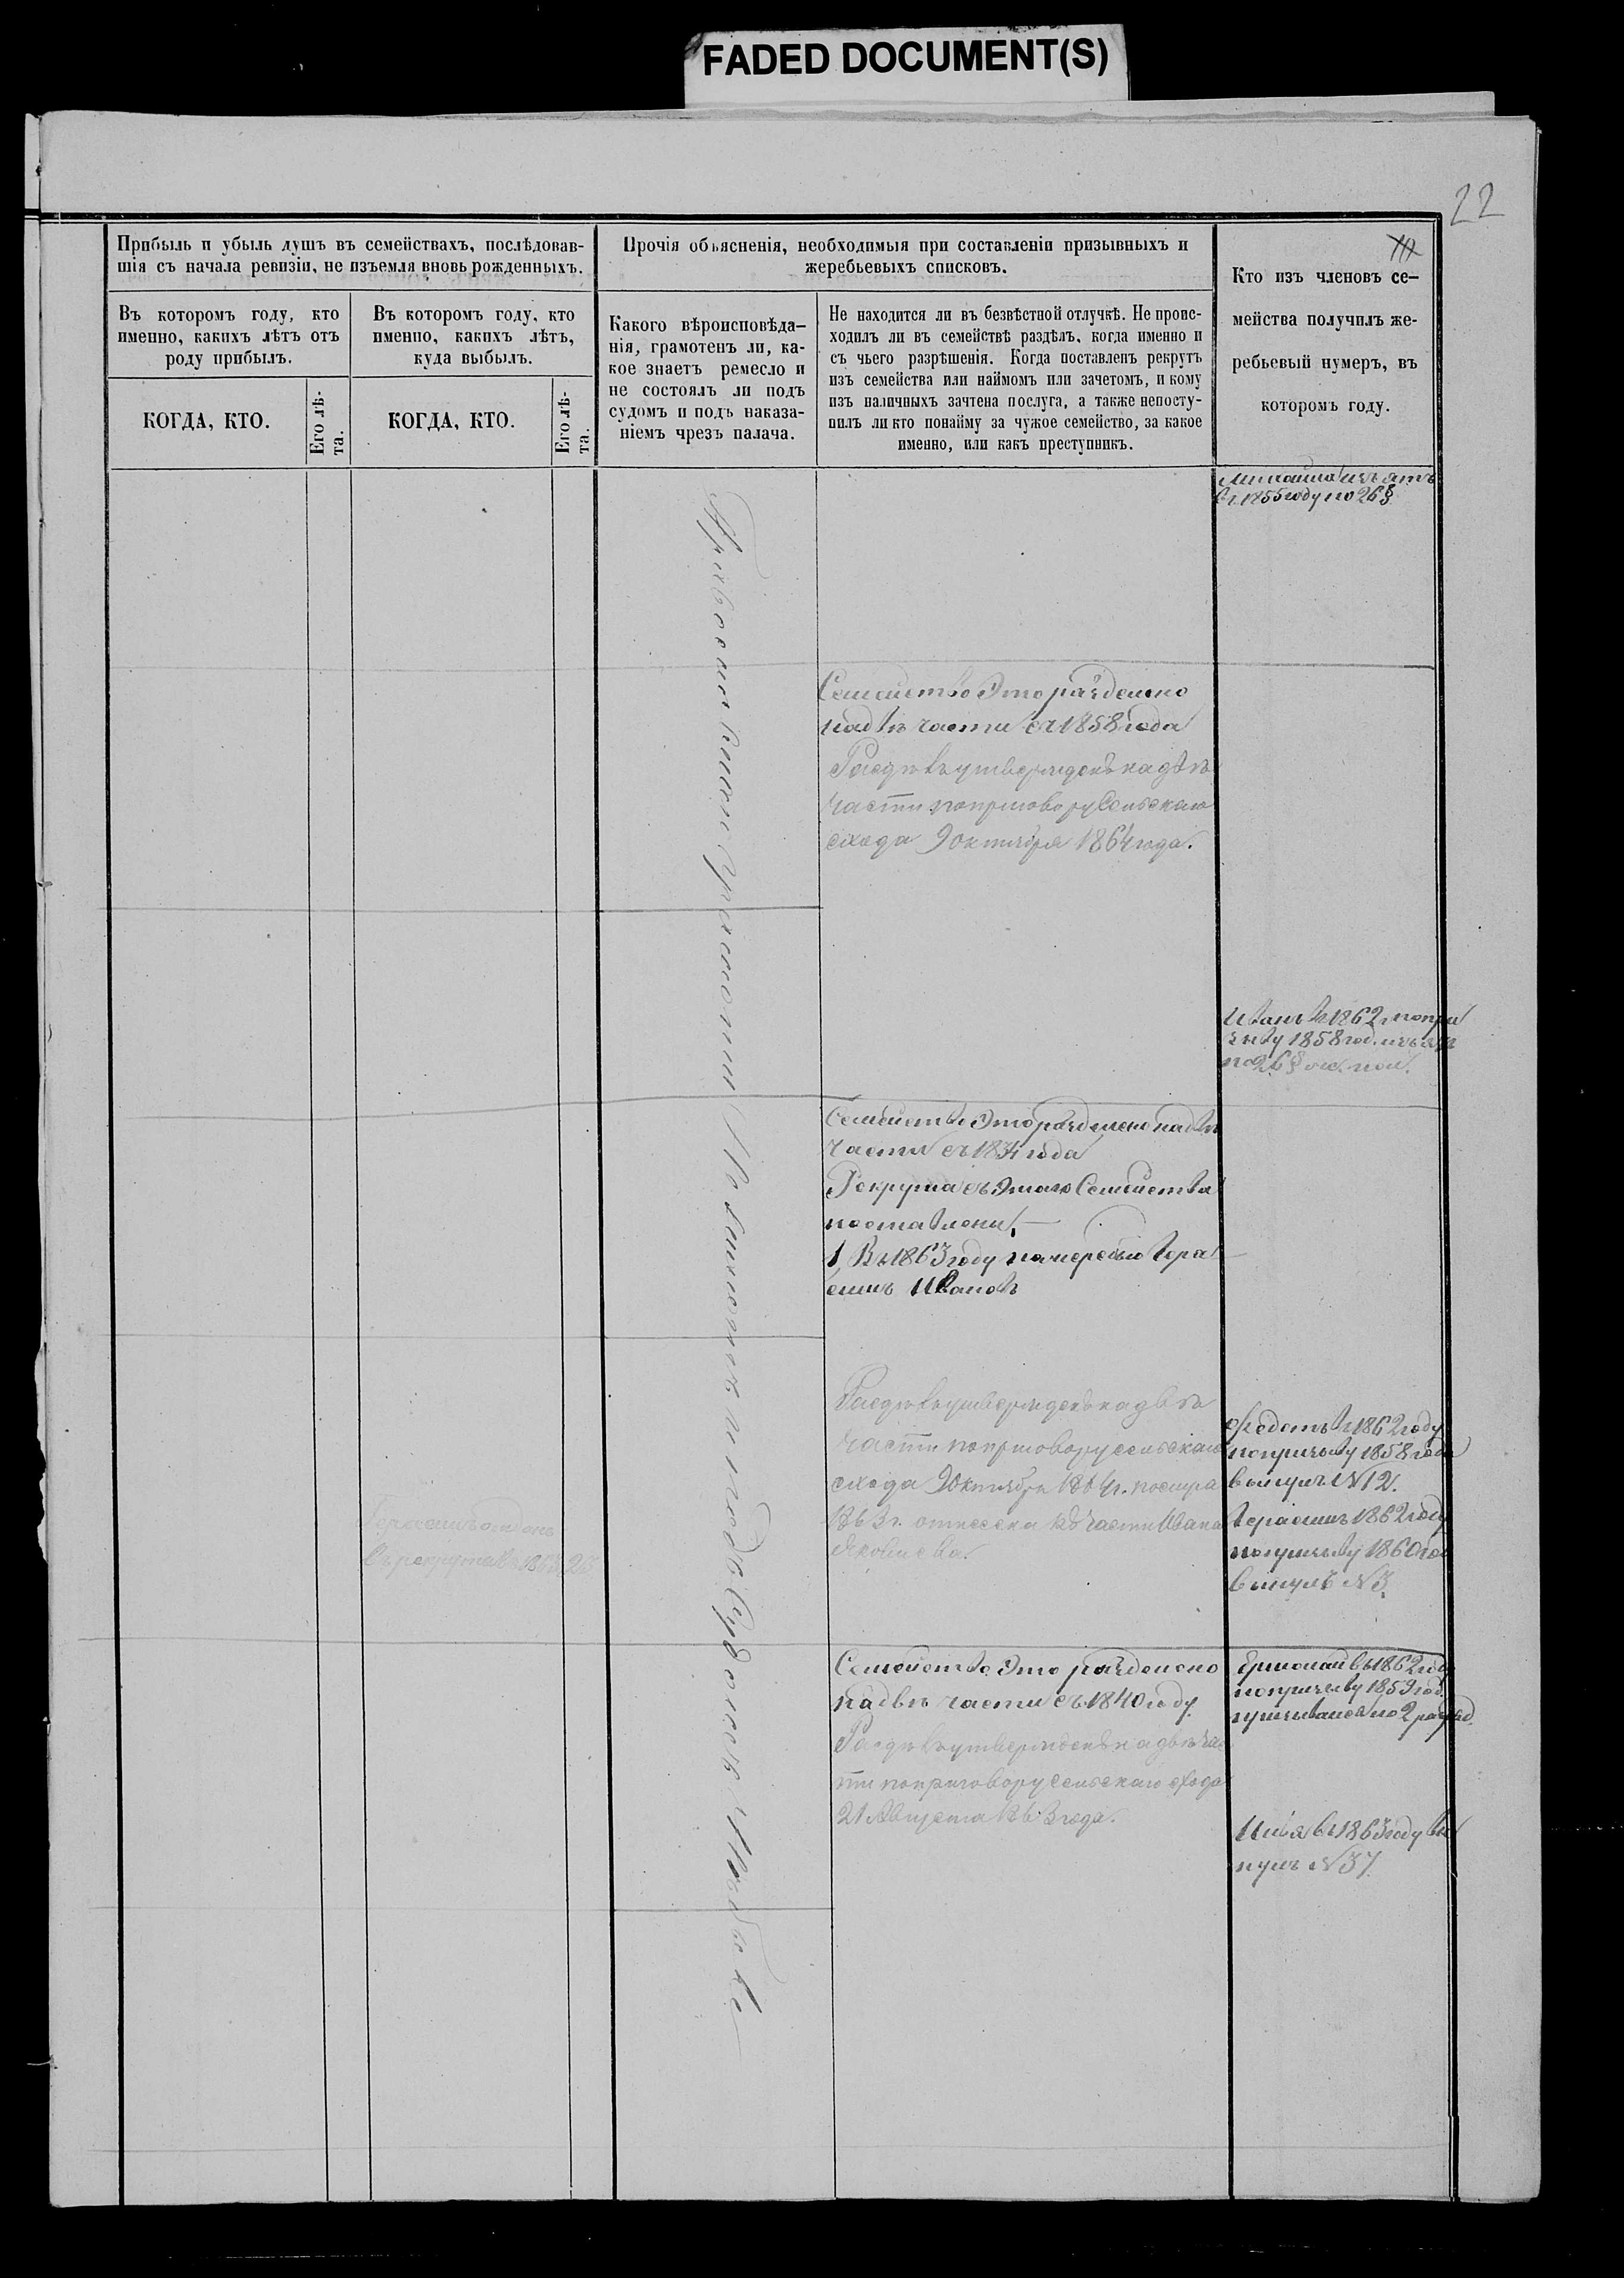 FADED DOCUMENT(S)
22
Прибыль и убыль душъ въ семействахъ, послѣдовав-
шія съ начала ревизіи, не изъемля вновь рожденныхъ.
Прочія объясненія, необходимыя при составленіи призывныхъ и
жеребьевыхъ списковъ.
Кто изъ членовъ се-
мейства получилъ же-
ребьевый нумеръ, въ
которомъ году.
Въ которомъ году, кто
именно, какихъ лѣтъ отъ
роду прибылъ.
Въ которомъ году, кто
именно, какихъ лѣтъ,
куда выбылъ.
Какого вѣроисповѣда-
нія, грамотенъ ли, ка-
кое знаетъ ремесло и
не состоялъ ли подъ
судомъ и подъ наказа-
ніемъ чрезъ палача.
Не находится ли въ безвѣстной отлучкѣ. Не проис-
ходилъ ли въ семействѣ раздѣлъ, когда именно и
съ чьего разрѣшенія. Когда поставленъ рекрутъ
изъ семейства или наймомъ или зачетомъ, и кому
изъ наличныхъ зачтена послуга, а также непосту-
пилъ ли кто понайму за чужое семейство, за какое
именно, или какъ преступникъ.
КОГДА, КТО.
Его лѣ-
та.
КОГДА, КТО.
Его лѣ-
та.
Михаила изъятъ
въ 1855 году по 26 §
Семейство Это раздѣлено
надвѣ части съ 1858 года
Раздѣлъ утвержденъ на двѣ
части поприговору Сельскаго
схода 9 октября 1864 года.
Иванъ въ 1862 г. попри
зыву 1858 год. изъят
по 26 §
Семейство Это раздѣлено надвѣ
части съ 1834 года
Рекрута съ Этаго Семейства
поставлены,
1, Въ 1863 году пожеребью Гера
симъ Ивановъ
Раздѣлъ утвержденъ на двѣ
части поприговору сельскаго
схода 9 октября 1864 г.
1863 г. отнесена къ части Ивана
Яковлева.
Федотъ въ 1862 году
попризыву 1858 года
вынулъ № 12.
Герасимъ 1862 году
попризыву 1860 год
вынулъ № 3.
Герасимъ отданъ
въ рекрута въ 1863 23
Семейство Это раздѣлено
надвѣ части съ 1840 году.
Раздѣлъ утвержденъ на двѣ час
ти поприговору сельскаго схода
21 Августа 1863 года.
Ермолай въ 1862 год
попризыву 1859 год.
Илья въ 1863 году вы
нулъ № 37.
Православнаго